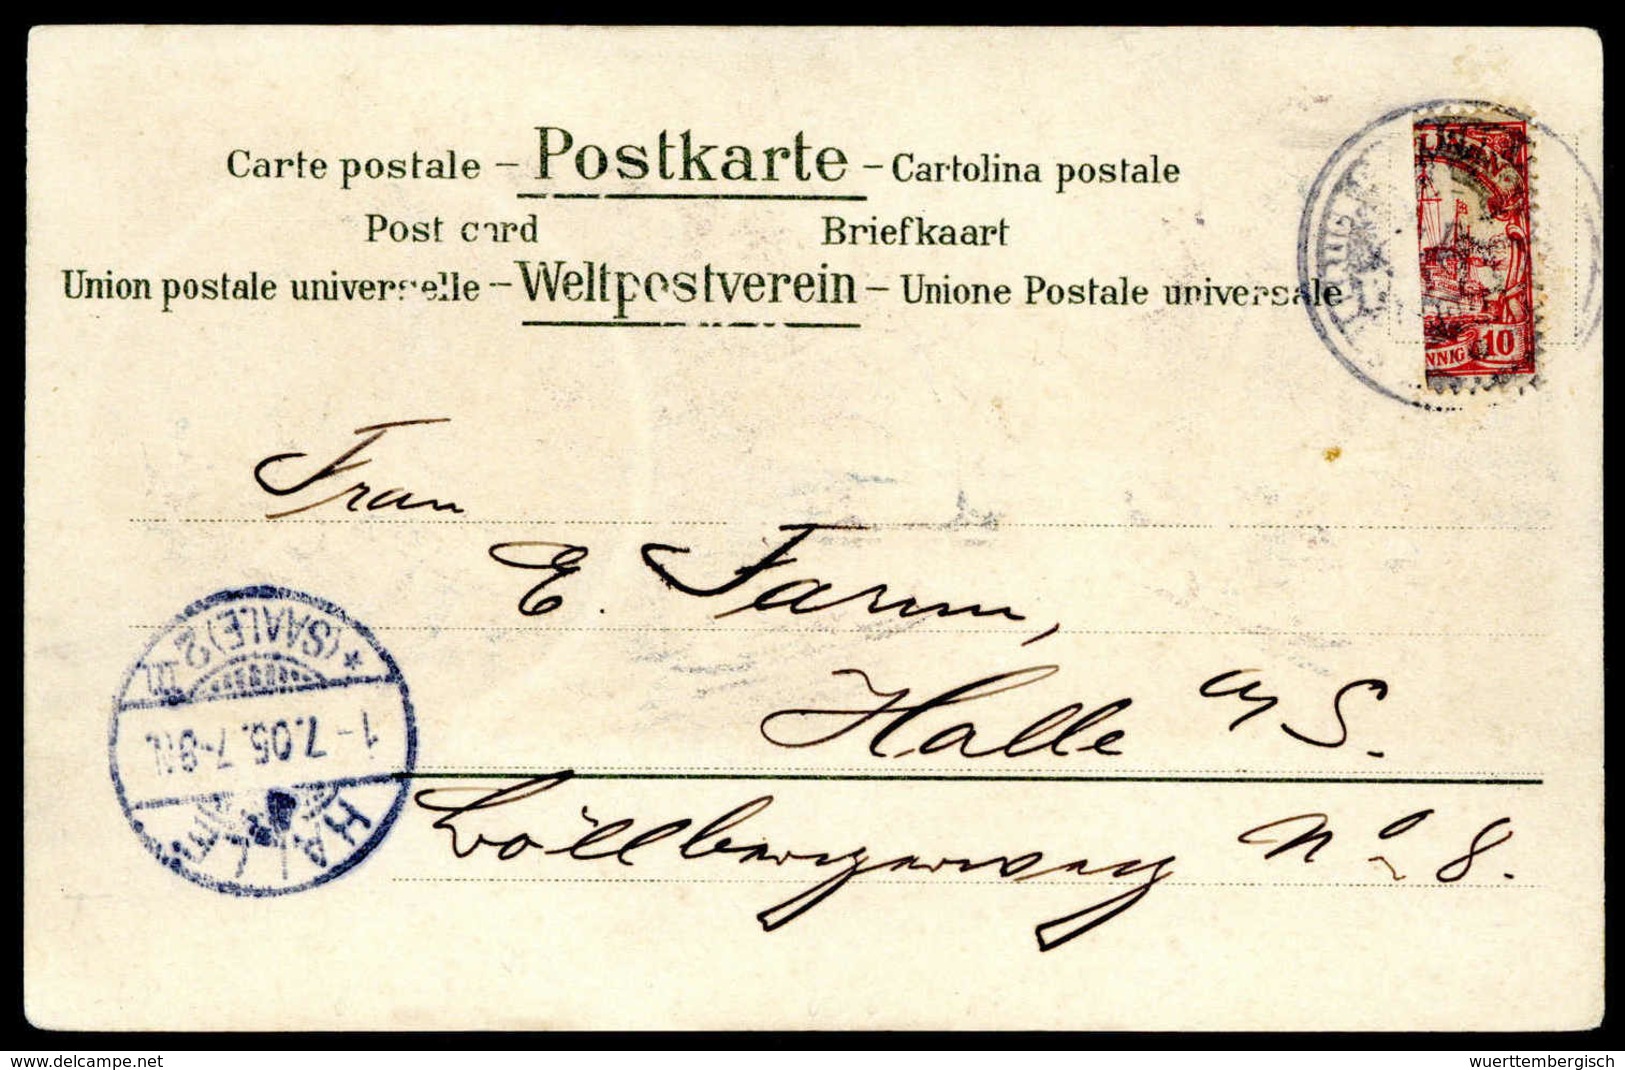 Carte postale – Postkarte – Cartolina postale
Post card Briefkaart
Union postale universelle – Weltpostverein – Unione Postale universale
NNIG 10
Frau
E. Farm,
Halle a/S.
Böllbergerweg No 8.
HALLE
1-7.05.7-8N.
*(SAALE)2 III
delcampe.net
wuerttembergisch